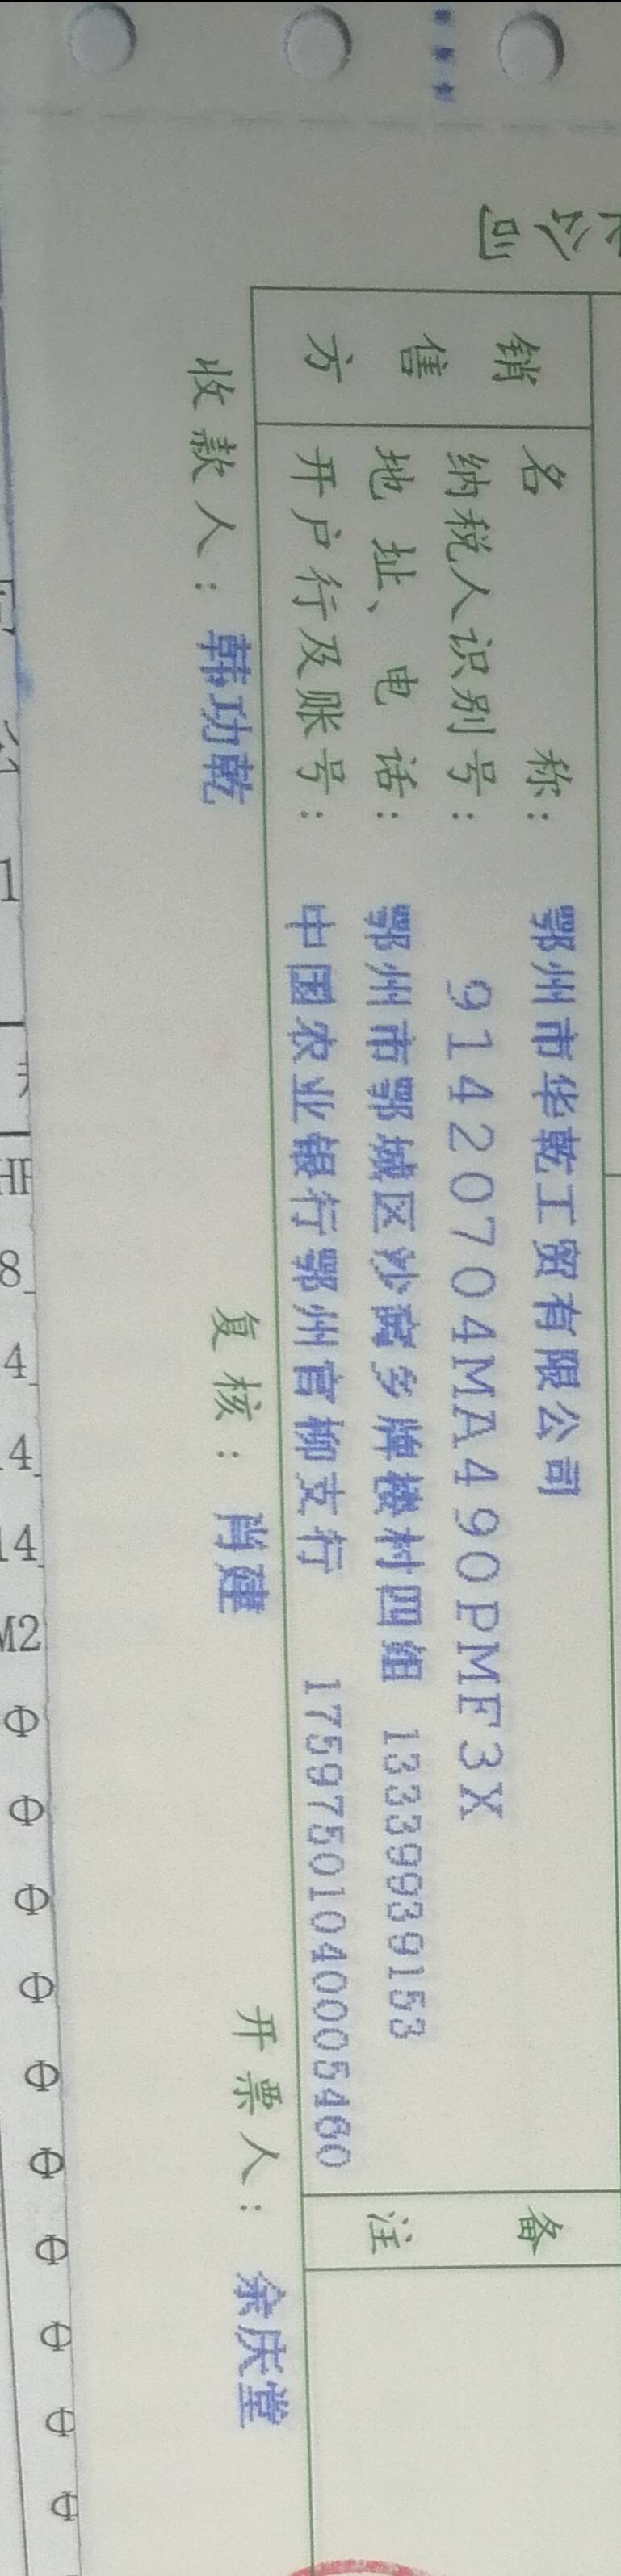 销售方
名称: 鄂州市华乾工贸有限公司
纳税人识别号: 91420704MA490PMF3X
地址、电话: 鄂州市鄂城区沙窝乡牌楼村四组 13339939153
开户行及账号: 中国农业银行鄂州官柳支行 17597501040005460
备注
收款人: 韩功乾 复核: 肖建 开票人: 余庆堂
公司
1
8
4
4
14
M2
Φ
Φ
Φ
Φ
Φ
Φ
Φ
Φ
Φ
Φ